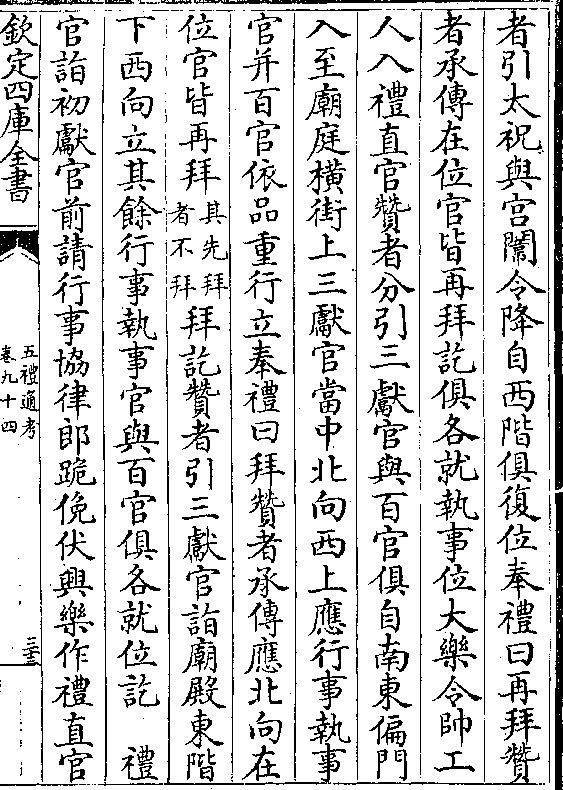 者引太祝與宫闈令降自西階俱復位奉禮曰再拜贊
者承傳在位官皆再拜訖俱各就執事位大樂令帥工
人入禮直官贊者分引三獻官與百官俱自南東偏門
入至廟庭横街上三獻官當中北向西上應行事執事
官并百官依品重行立奉禮曰拜贊者承傳應北向在
位官皆再拜其先拜者不拜拜訖贊者引三獻官詣廟殿東階
下西向立其餘行事執事官與百官俱各就位訖 禮
官詣初獻官前請行事協律郎跪俛伏興樂作禮直官
欽定四庫全書
五禮通考
卷九十四
三三